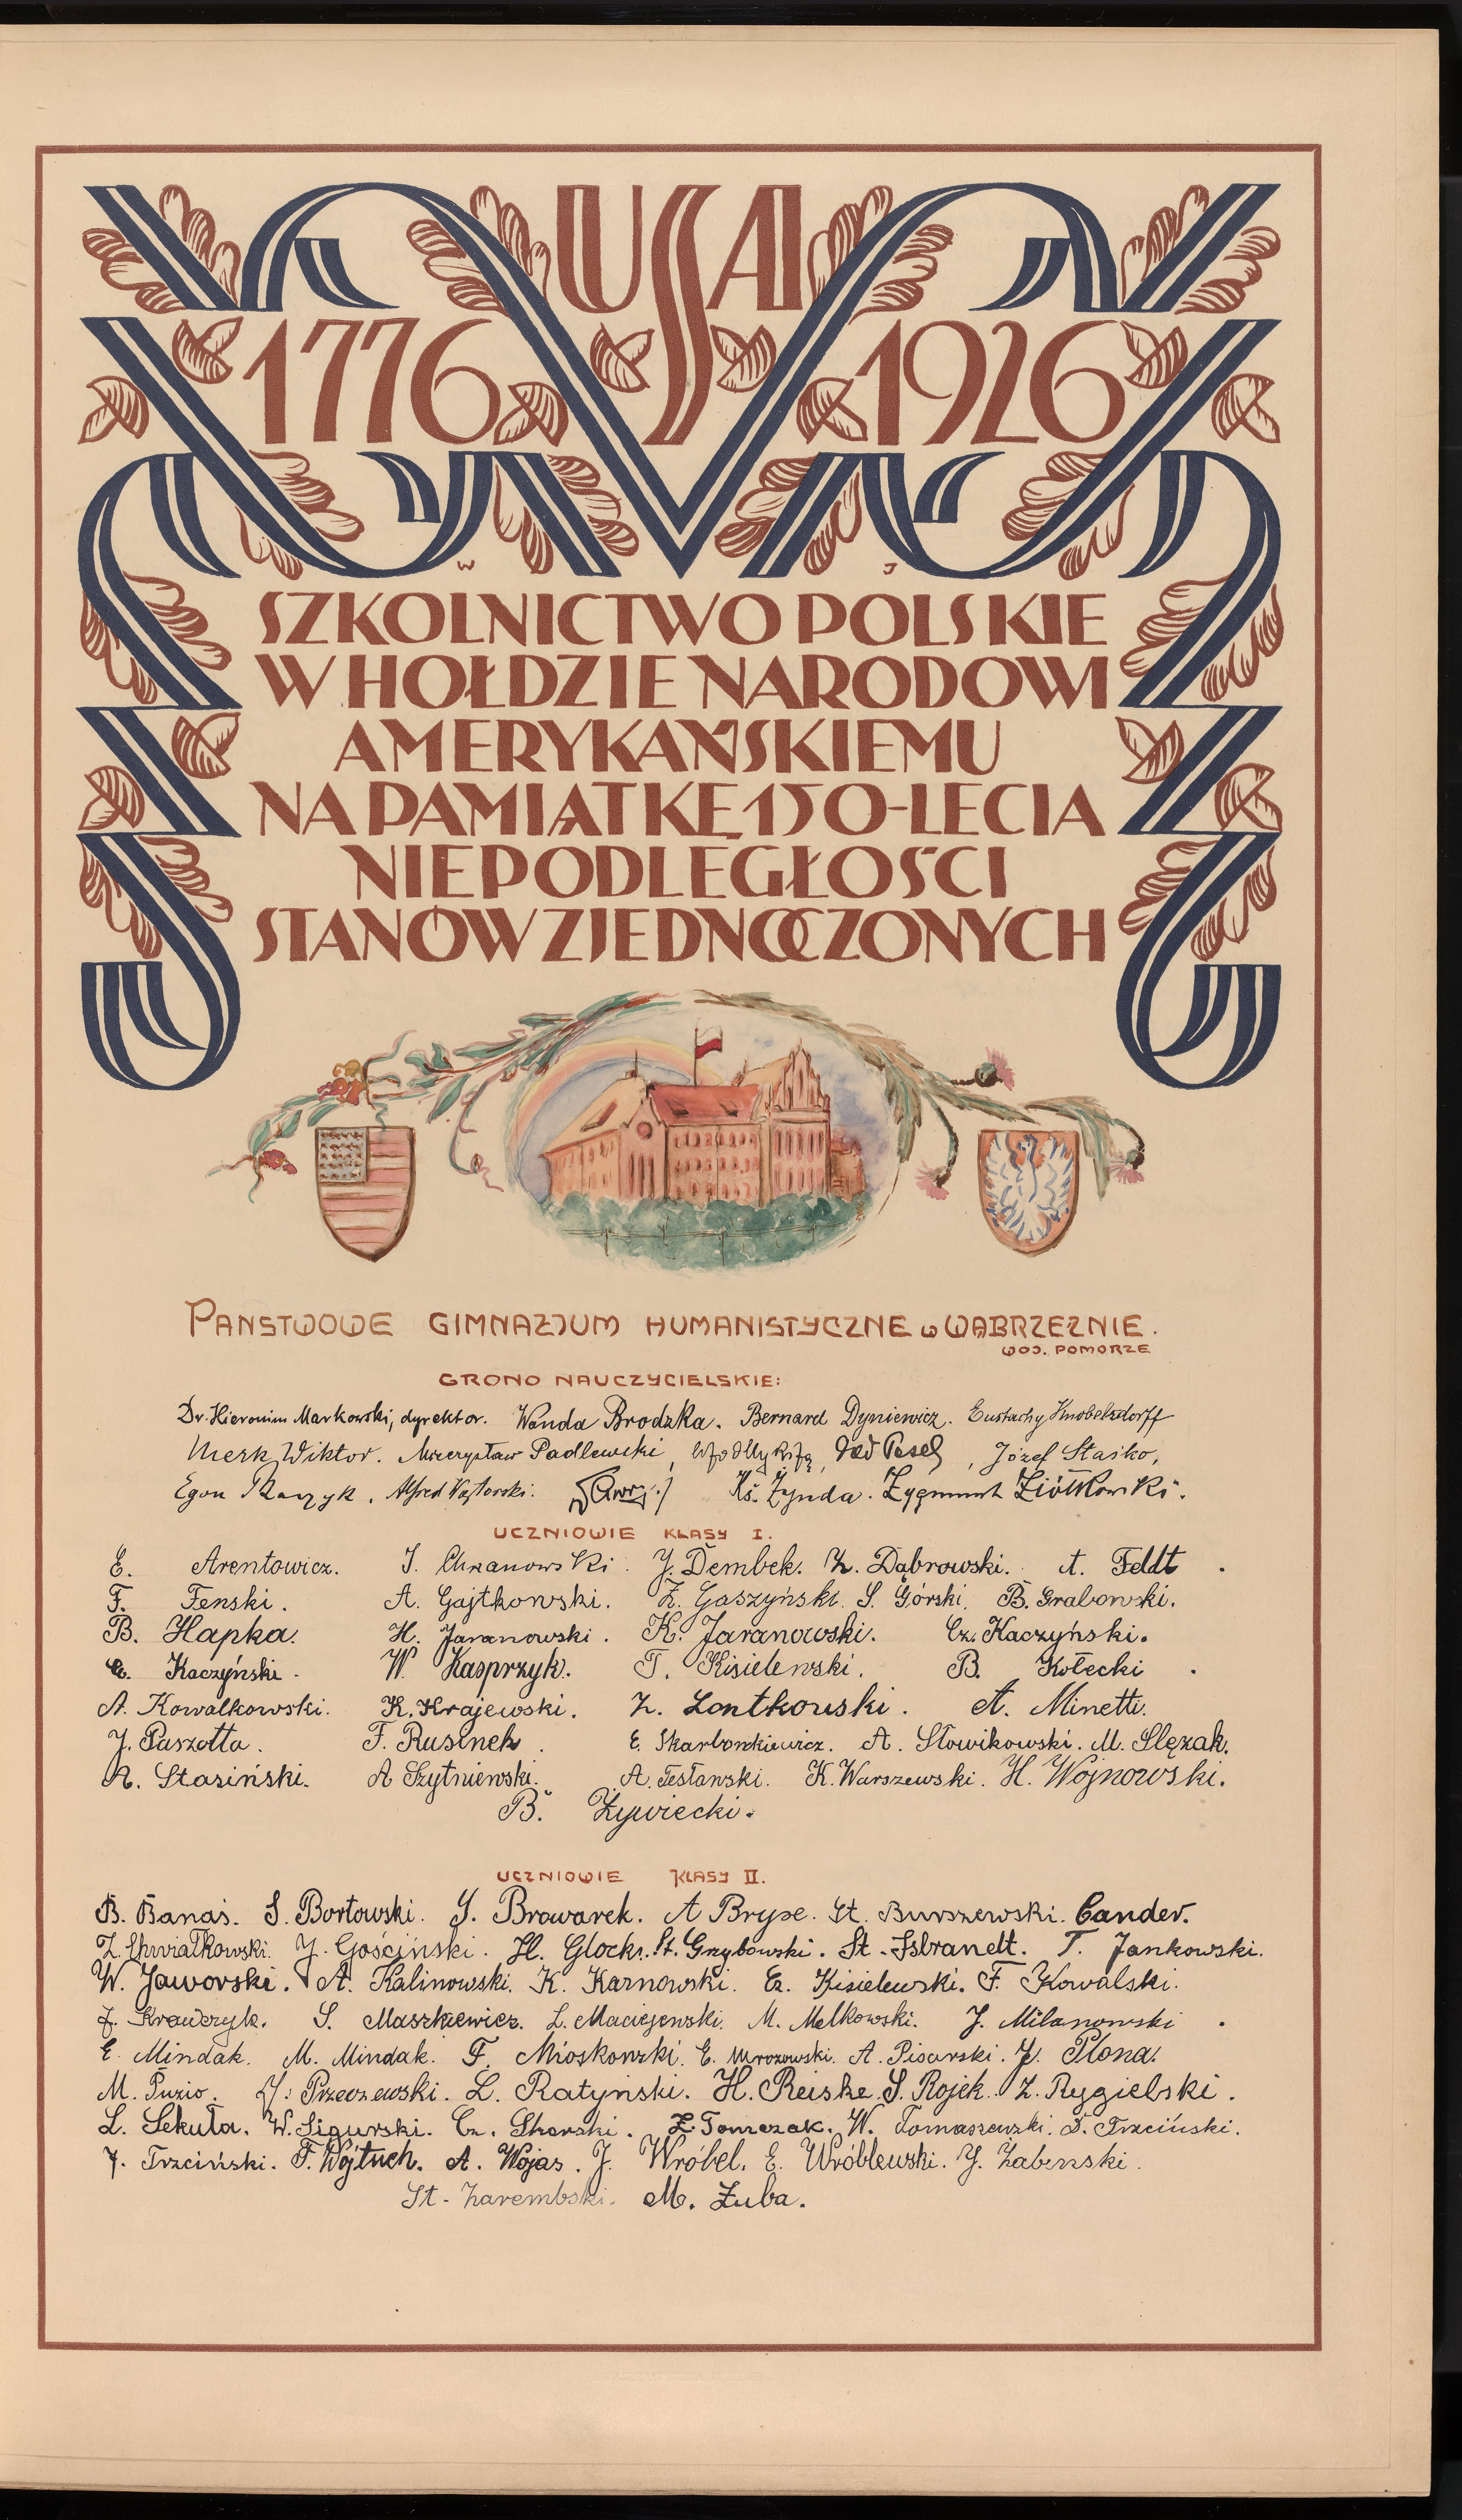 USA
1776 1926
W J
SZKOLNICTWO POLSKIE
W HOŁDZIE NARODOWI
AMERYKAŃSKIEMU
NA PAMIĄTKĘ 150-LECIA
NIEPODLEGŁOŚCI
STANÓW ZJEDNOCZONYCH
PANSTWOWE GIMNAZJUM HUMANISTYCZNE W WĄBRZEŹNIE.
WOJ. POMORZE
GRONO NAUCZYCIELSKIE:
Dr. Hieronim Markowski, dyrektor. Wanda Brodzka. Bernard Dyniewicz. Eustachy Knobelsdorff
Merk Wiktor. Mieczysław Padlewski, Józef Staśko,
Egon Alfred Ks. Zynda. Zygmunt Ziółkowski.
UCZNIOWIE KLASY I.
E. Arentowicz. J. Chranowski. J. Dembek. Z. Dąbrowski. A. Feldt.
F. Fenski. A. Gajtkowski. Z. Gaszyński. S. Górski. B. Grabowski.
B. Hapka. H. Jaranowski. K. Jaranowski. Cz. Kaczyński.
C. Kaczyński. W. Kasprzyk. T. Kisielewski. B. Kołecki.
A. Kowalkowski. K. Krajewski. Z. Lontkowski. A. Minetti.
J. Paszotta. F. Rusinek. E. Skarbonkiewicz. A. Słowikowski. M. Slęzak.
A. Stasiński. A Szytniewski. A. Testawski. K. Warszewski. H. Wojnowski.
B. Żywiecki.
UCZNIOWIE KLASY II.
B. Banaś. S. Bortowski. J. Browarek. A Bryse. St. Burszewski. Cander.
Z. Chwiałkowski. J. Gościński. H. Glock. St. Grzybowski. St. Isbrandt. T. Jankowski.
W. Jaworski. A. Kalinowski. K. Karnowski. Cz. Kisielewski. F. Kowalski.
J. Krawczyk. S. Maszkiewicz. L. Maciejewski. M. Melkowski. J. Milanowski.
E. Mindak. M. Mindak. F. Mioskowski. E. Mrozowski. A. Pisarski. J. Plona.
M. Puzio. J. Przeczewski. L. Ratyński. H. Reiske. S. Rojek. Z. Rygielski.
L. Sekuła. W. Sigurski. Cz. Skorski. Z. Tomczak. W. Tomaszewski. S. Trzciński.
J. Trzciński. F. Wojtuch. A. Wojas. J. Wróbel. E. Wróblewski. J. Zabenski.
St. Zarembski. M. Zuba.